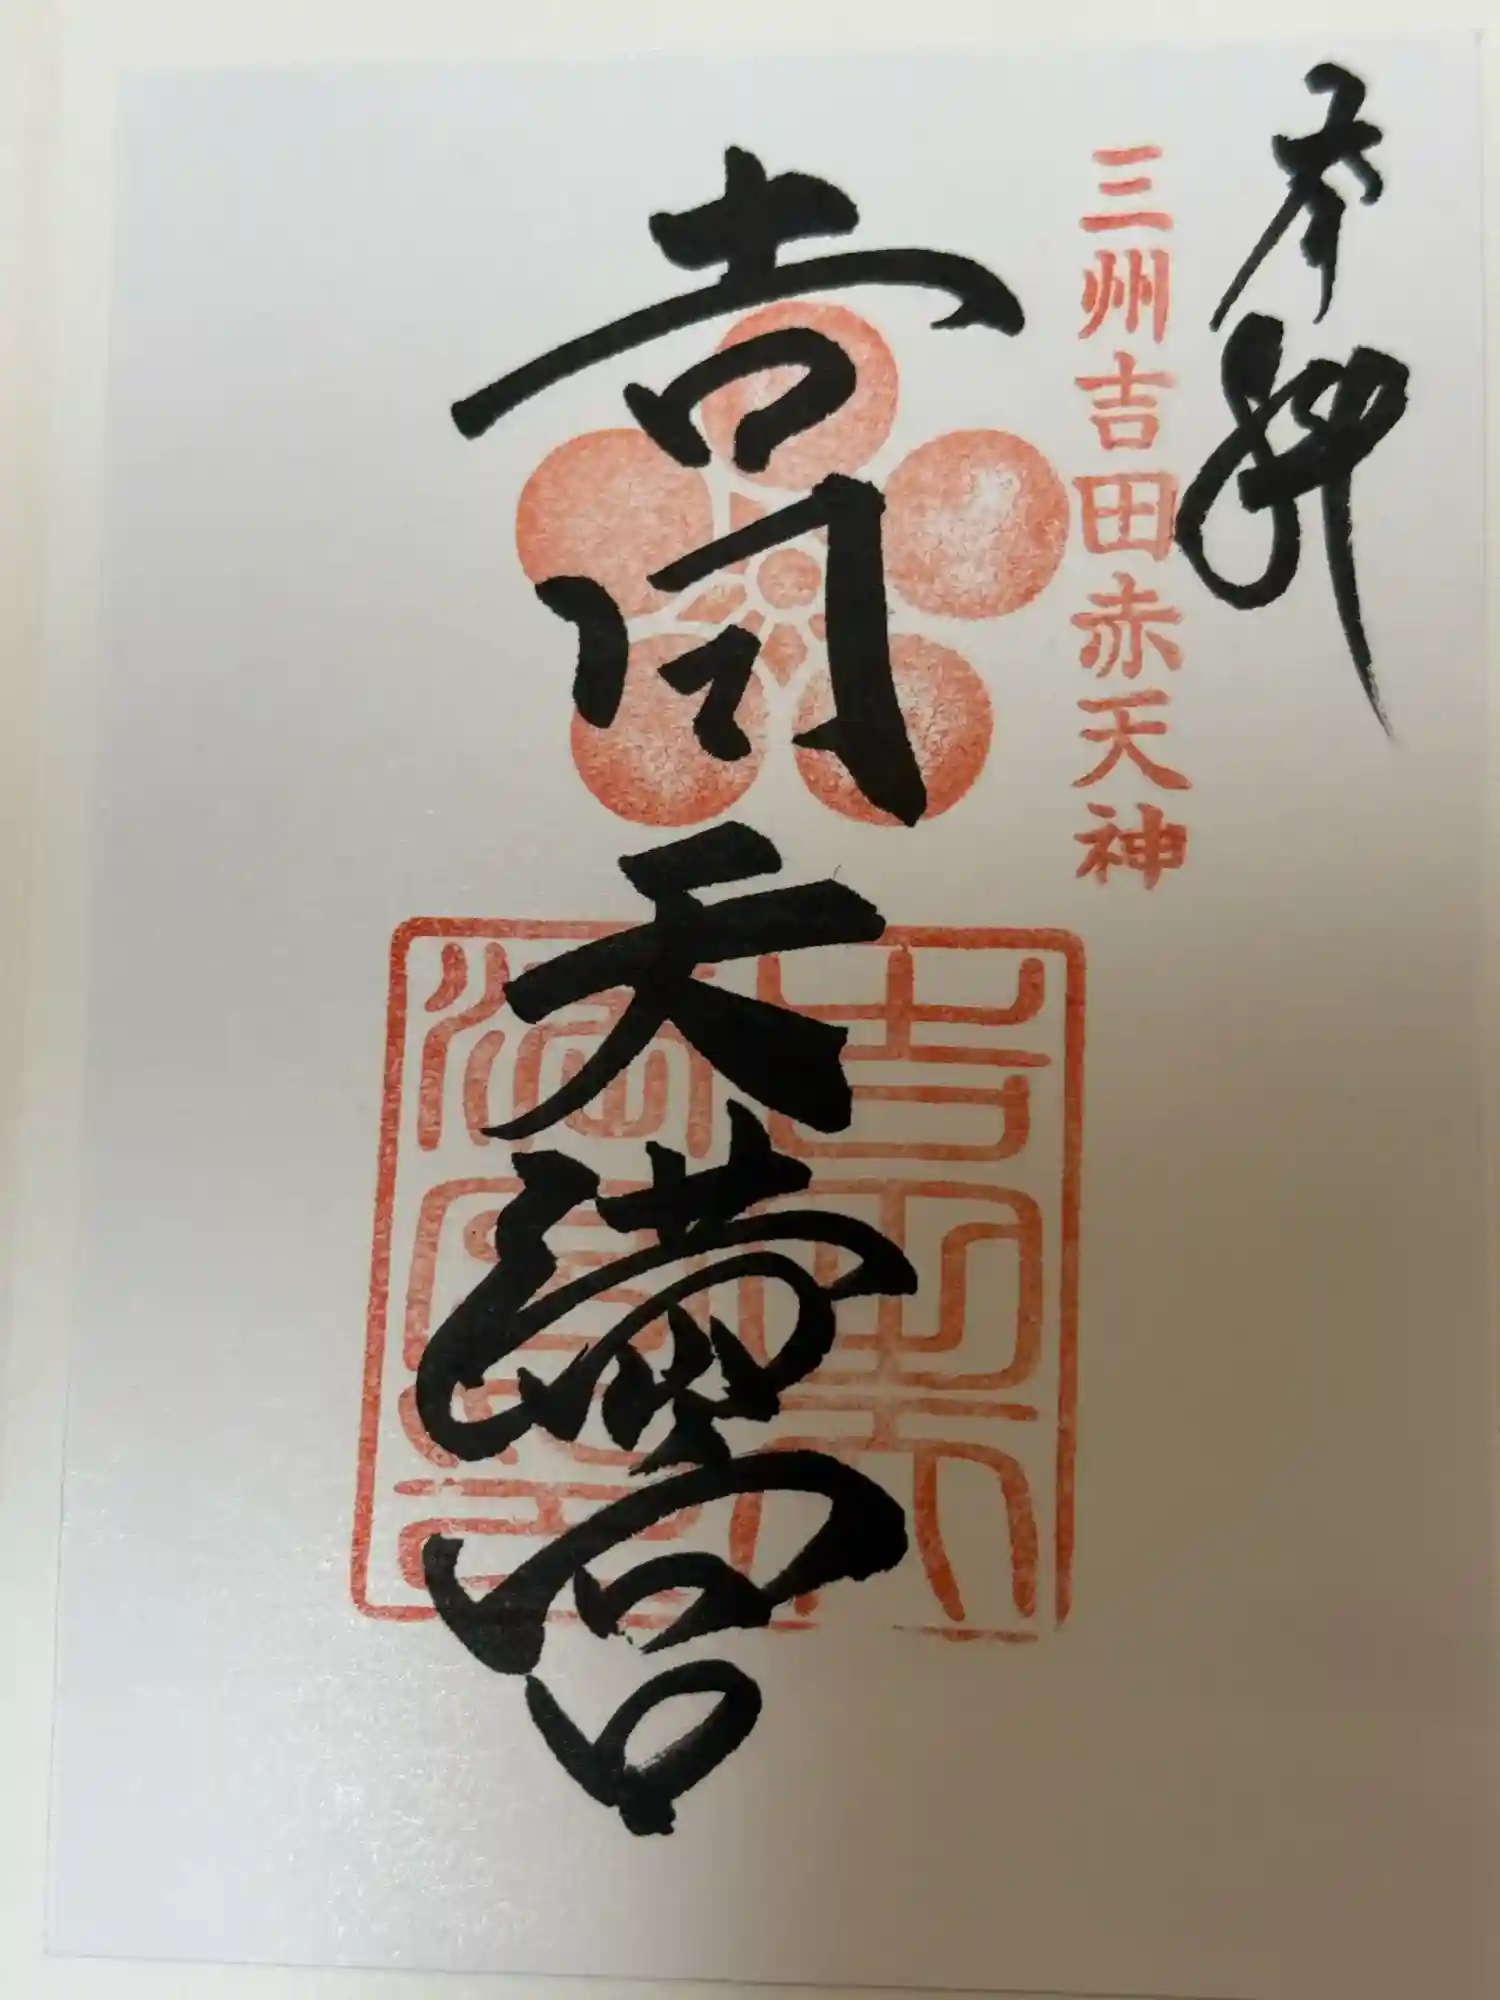 奉拝
三州吉田赤天神
吉田天満宮
吉田天
満宮之印